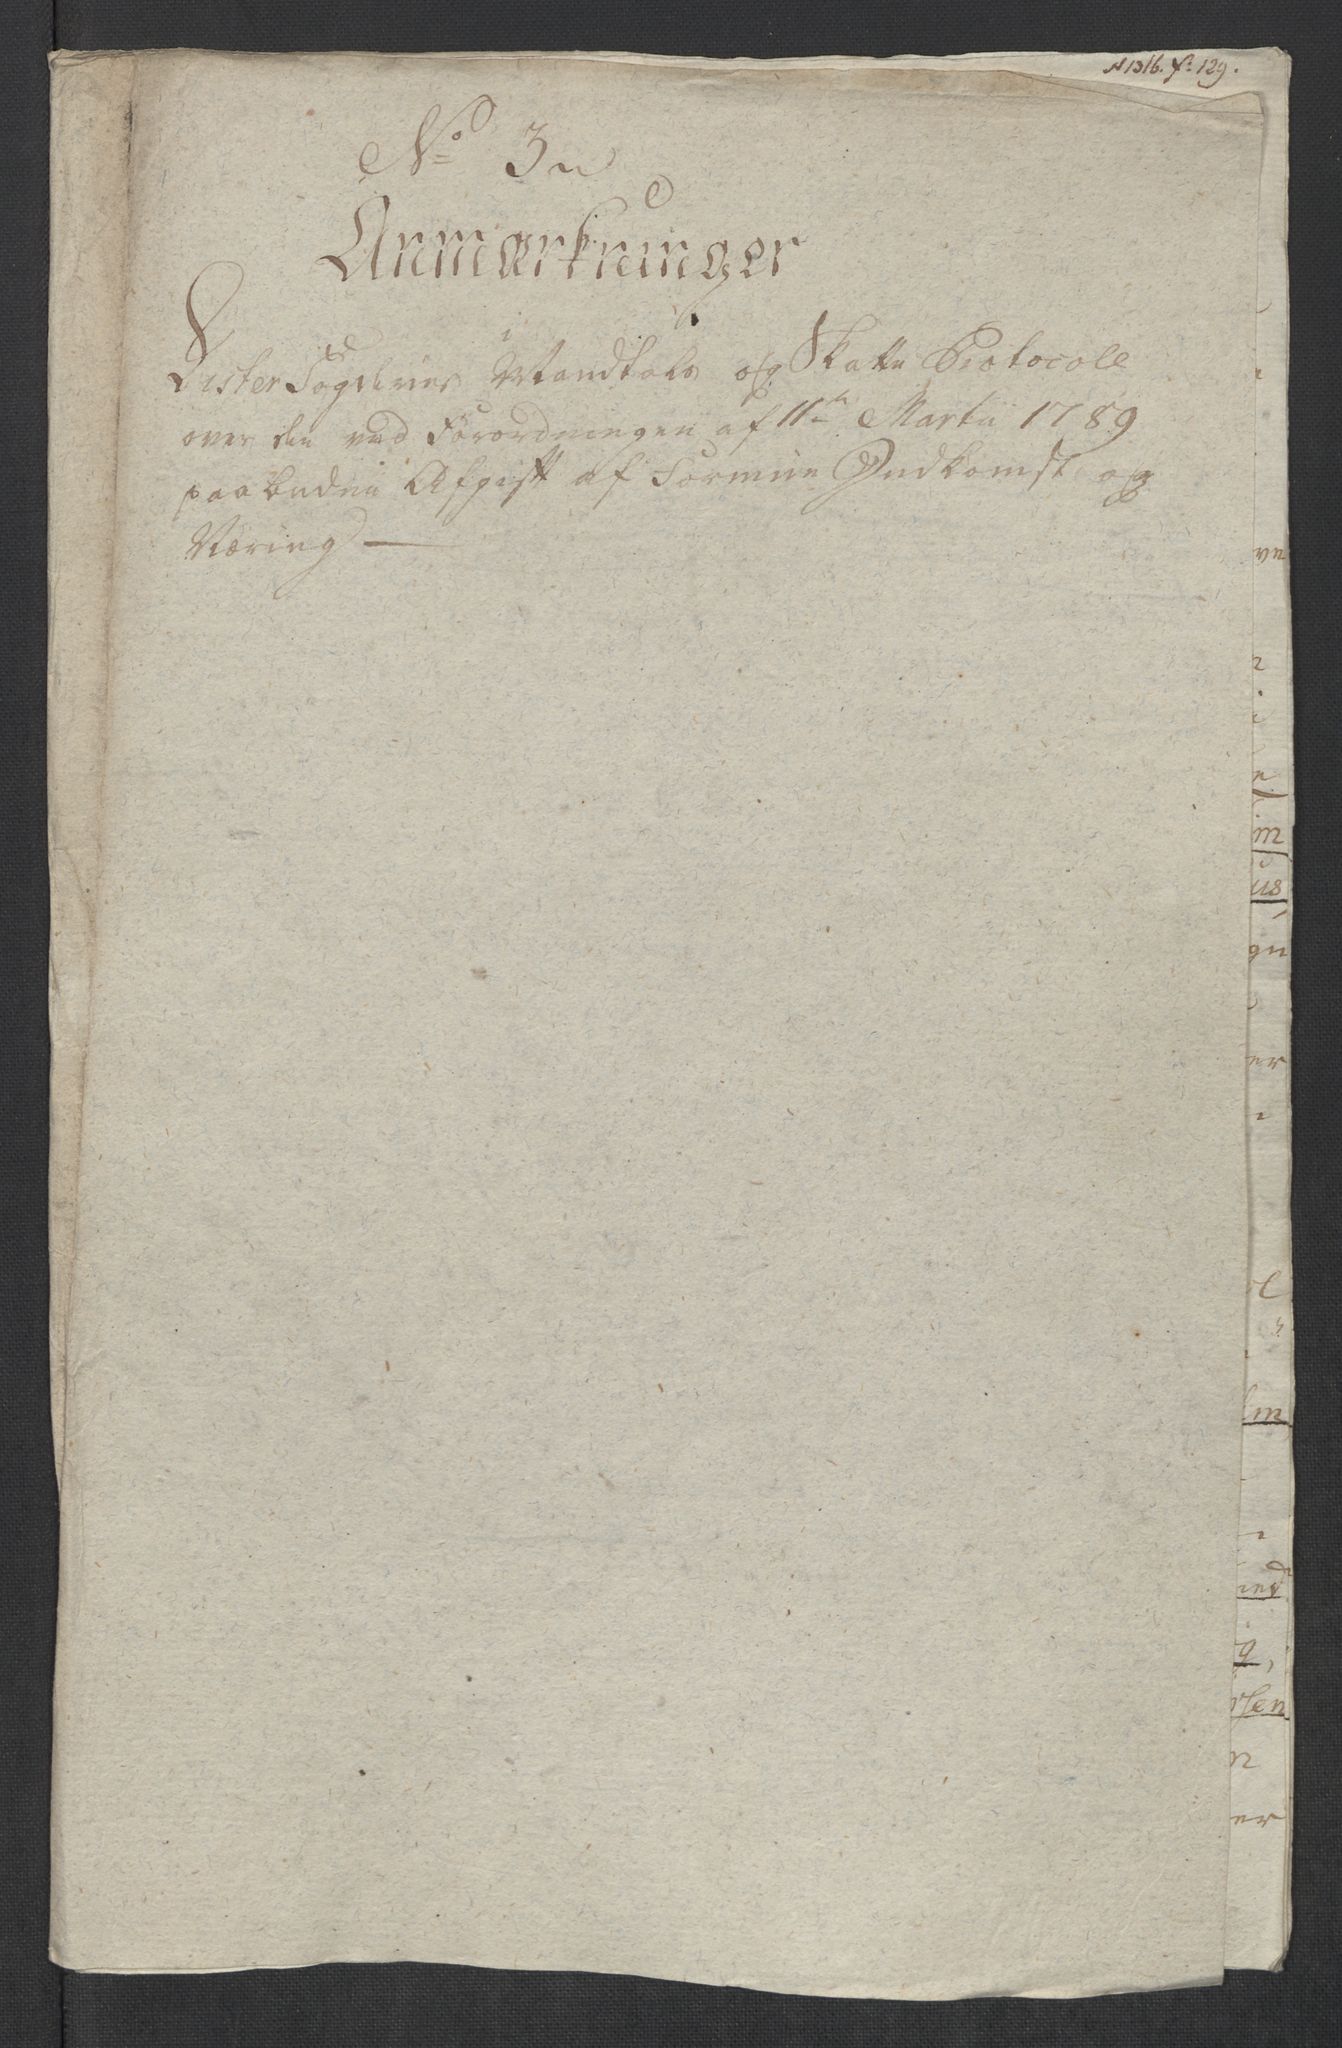 N 1316. f: 129.
No 3
Anmærkninger
i
Lister Fogderies Mandtals og Skatte Protocoll
over den ved Forordningen af 11te Martii 1789
paabudne Afgift af Formue Indkomst og
Næring —
ve
n
im
us
gn
er
l
lm
ned
g,
rsen
n
er